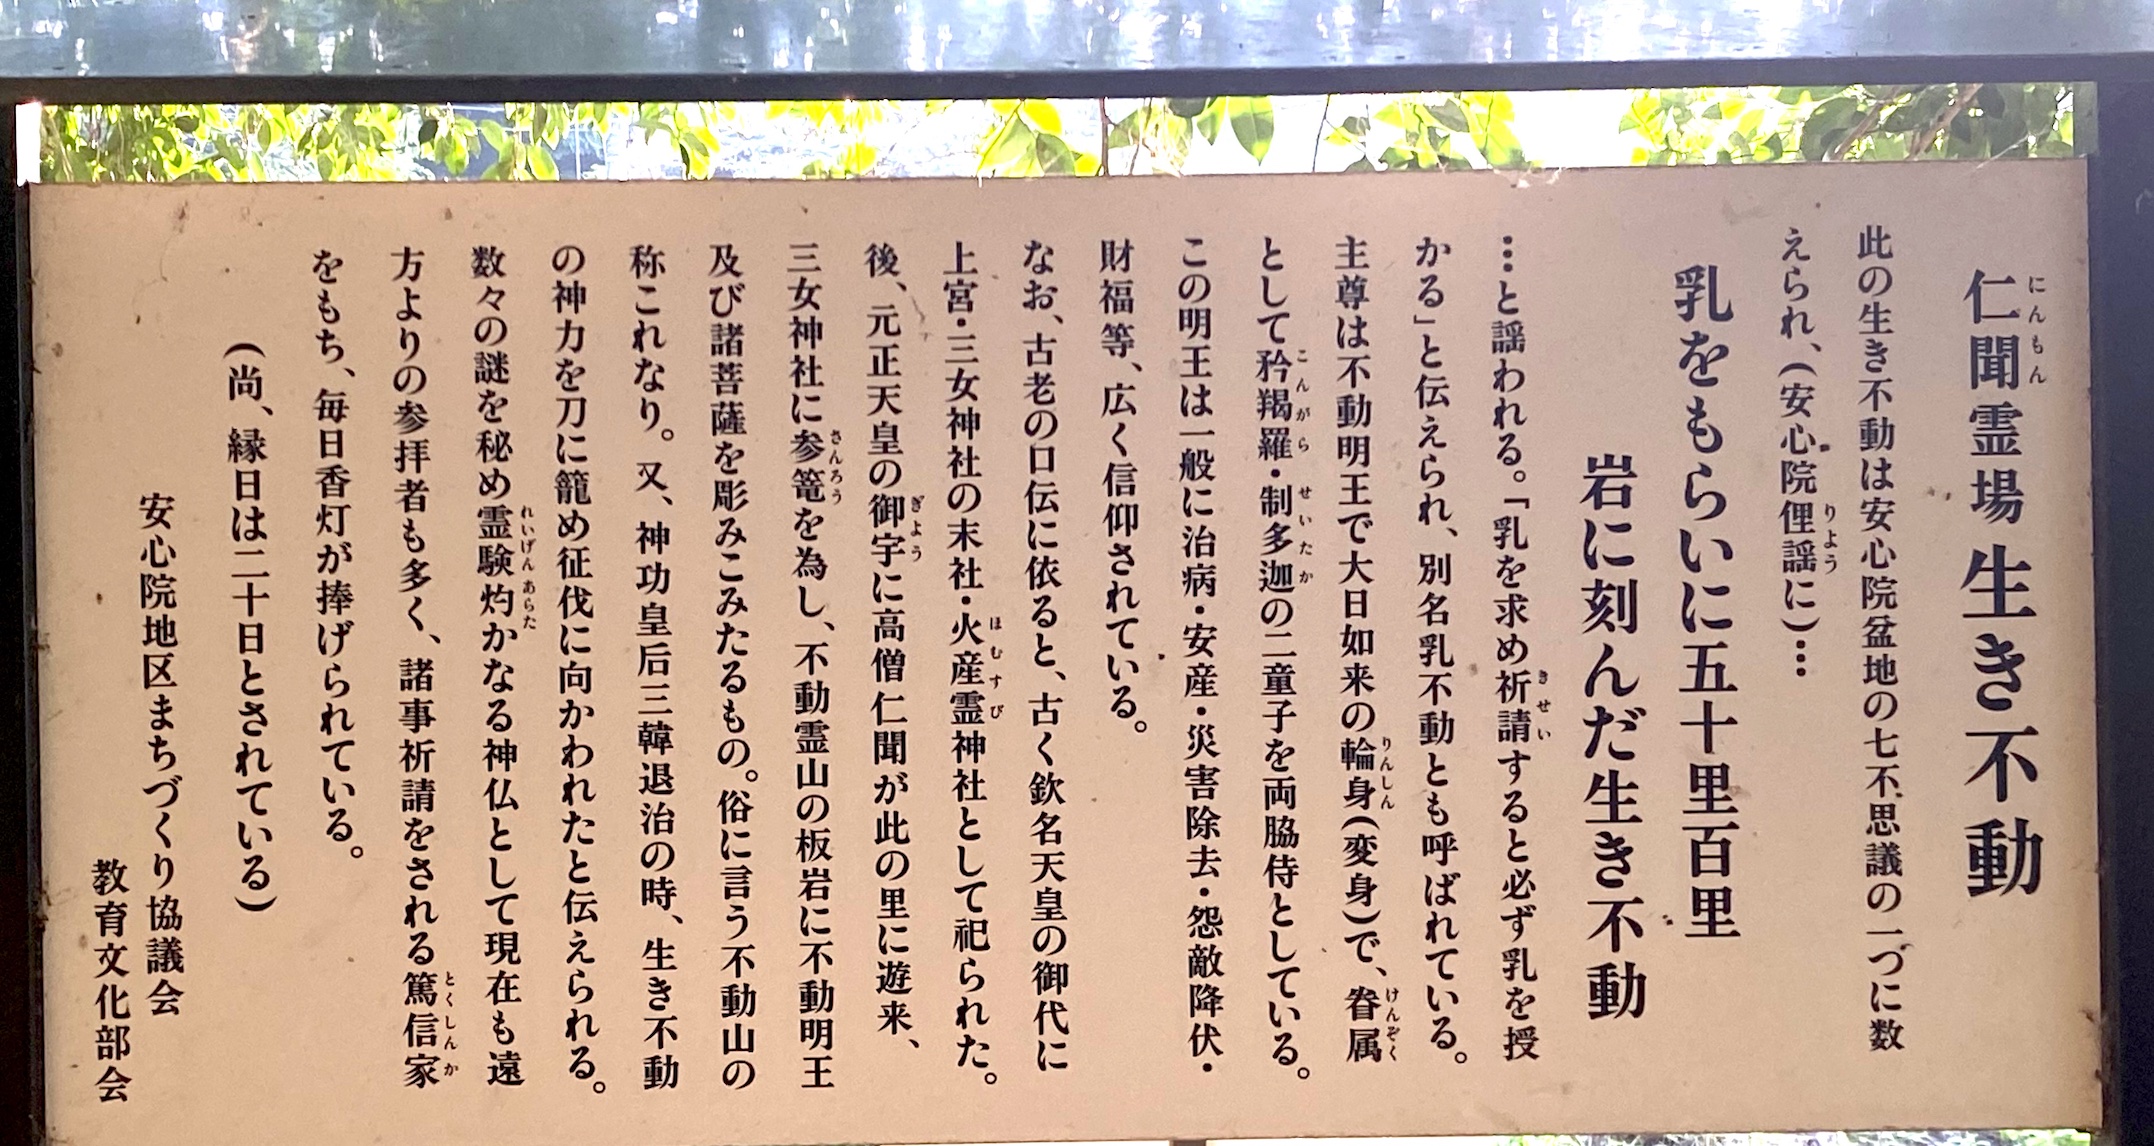 仁聞霊場 生き不動
にんもん
此の生き不動は安心院盆地の七不思議の一づに数
えられ、(安心院俚謡に)…
りよう
乳をもらいに五十里百里
岩に刻んだ生き不動
…と謡われる。「乳を求め祈請すると必ず乳を授
きせい
かる」と伝えられ、別名乳不動とも呼ばれている。
主尊は不動明王で大日如来の輪身(変身)で、眷属
りんしん けんぞく
として矜羯羅・制多迦の二童子を両脇侍としている。
こんがら せいたか
この明王は一般に治病・安産・災害除去・怨敵降伏・
財福等、広く信仰されている。
なお、古老の口伝に依ると、古く欽名天皇の御代に
上宮・三女神社の末社・火産霊神社として祀られた。
ほむすび
後、元正天皇の御宇に高僧仁聞が此の里に遊来、
ぎょう
三女神社に参篭を為し、不動霊山の板岩に不動明王
さんろう
及び諸菩薩を彫みこみたるもの。俗に言う不動山の
称これなり。又、神功皇后三韓退治の時、生き不動
の神力を刀に籠め征伐に向かわれたと伝えられる。
数々の謎を秘め霊験灼かなる神仏として現在も遠
れいげん あらた
方よりの参拝者も多く、諸事祈請をされる篤信家
とくしんか
をもち、毎日香灯が捧げられている。
(尚、縁日は二十日とされている)
安心院地区まちづくり協議会
教育文化部会